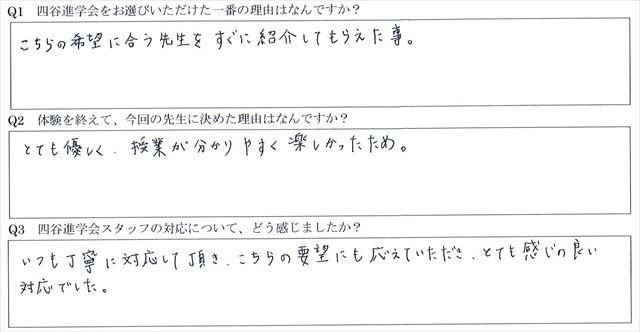 Q1 四谷進学会をお選びいただけた一番の理由はなんですか？
こちらの希望に合う先生をすぐに紹介してもらえた事。
Q2 体験を終えて、今回の先生に決めた理由はなんですか？
とても優しく、授業が分かりやすく楽しかったため。
Q3 四谷進学会スタッフの対応について、どう感じましたか？
いつも丁寧に対応して頂き、こちらの要望にも応えていただき、とても感じの良い
対応でした。